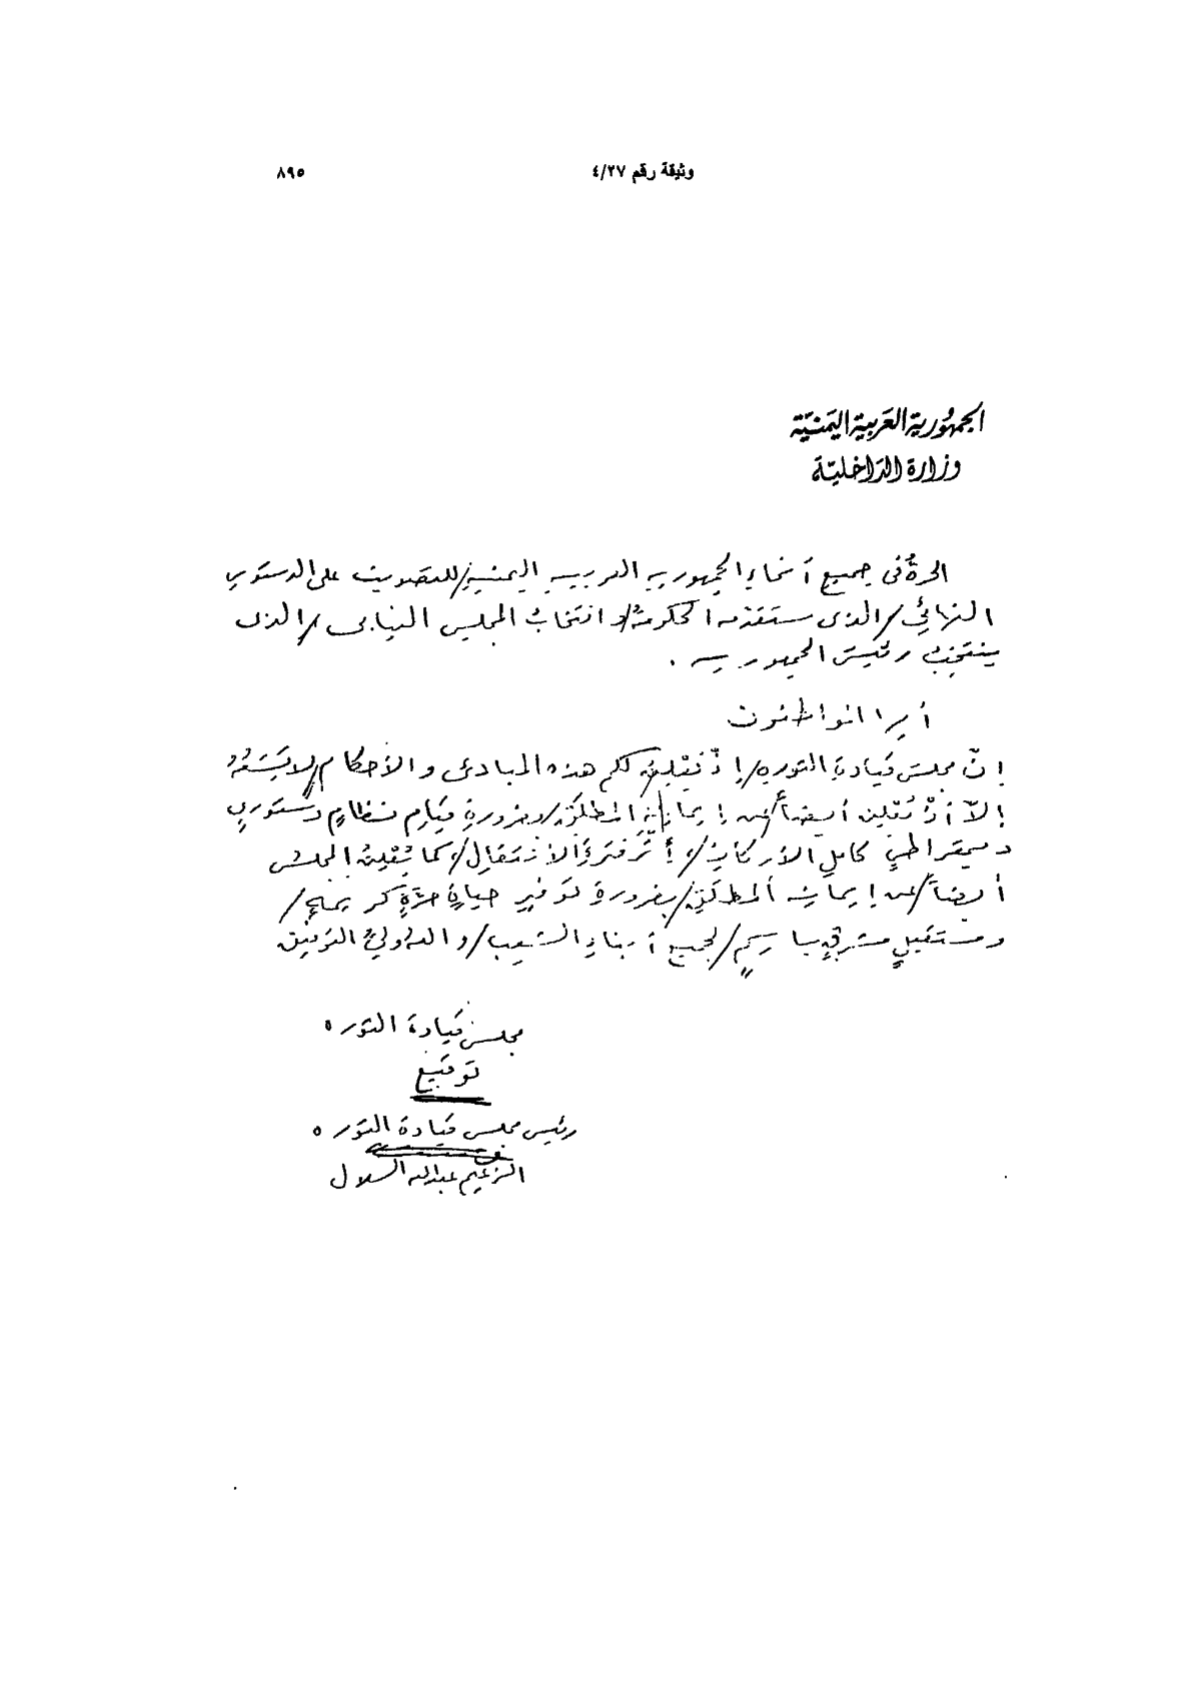 وثيقة رقم ٤/٢٧ ٨٩٥
الجمهُورية العَربية اليَمنيَّة
وزارة الدَاخليّة
الحرةُ في جميع أنحاءِ الجمهورية العربية اليمنيةِ/للتصويت على الدستورِ
النهائيِّ/الذى ستقدمه الحكومةُ/وانتخابُ المجلس النيابى/الذى
ينتخبُ رئيسَ الجمهورية .
أيها المواطنون
إنّ مجلسَ قيادةِ الثوره/إذْ يُعْلِنُ لكم هذه المبادئ والأحكام/لا يَسَعُهُ
إلاّ أنْ يُعْلِنَ أيضاً/عن إيمانِهِ المطلَقِ/بضرورةِ قيامِ نظامٍ دستوريٍ
ديمقراطىٍ كاملِ الأركانِ/إثْرَ فترةِ الانتقالِ/كما يُعْلِنُ المجلسُ
أيضاً/عن إيمانِهِ المطلَقِ/بضرورةِ توفيرِ حياةٍ حرّةٍ كريمةٍ/
ومستقبلٍ مشرقٍ باسمٍ/لجميع أبناءِ الشعب/والله وليُّ التوفيق
مجلس قيادة الثوره
توقيع
رئيس مجلس قيادة الثوره
الزعيم عبدالله السلال